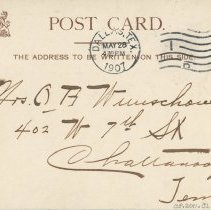 POST CARD.
THE ADDRESS TO BE WRITTEN ON THIS SIDE.
DALLAS, TEX.
MAY 28
1907
Mrs. A H
402 W 7th St
Chattanoo
Ten